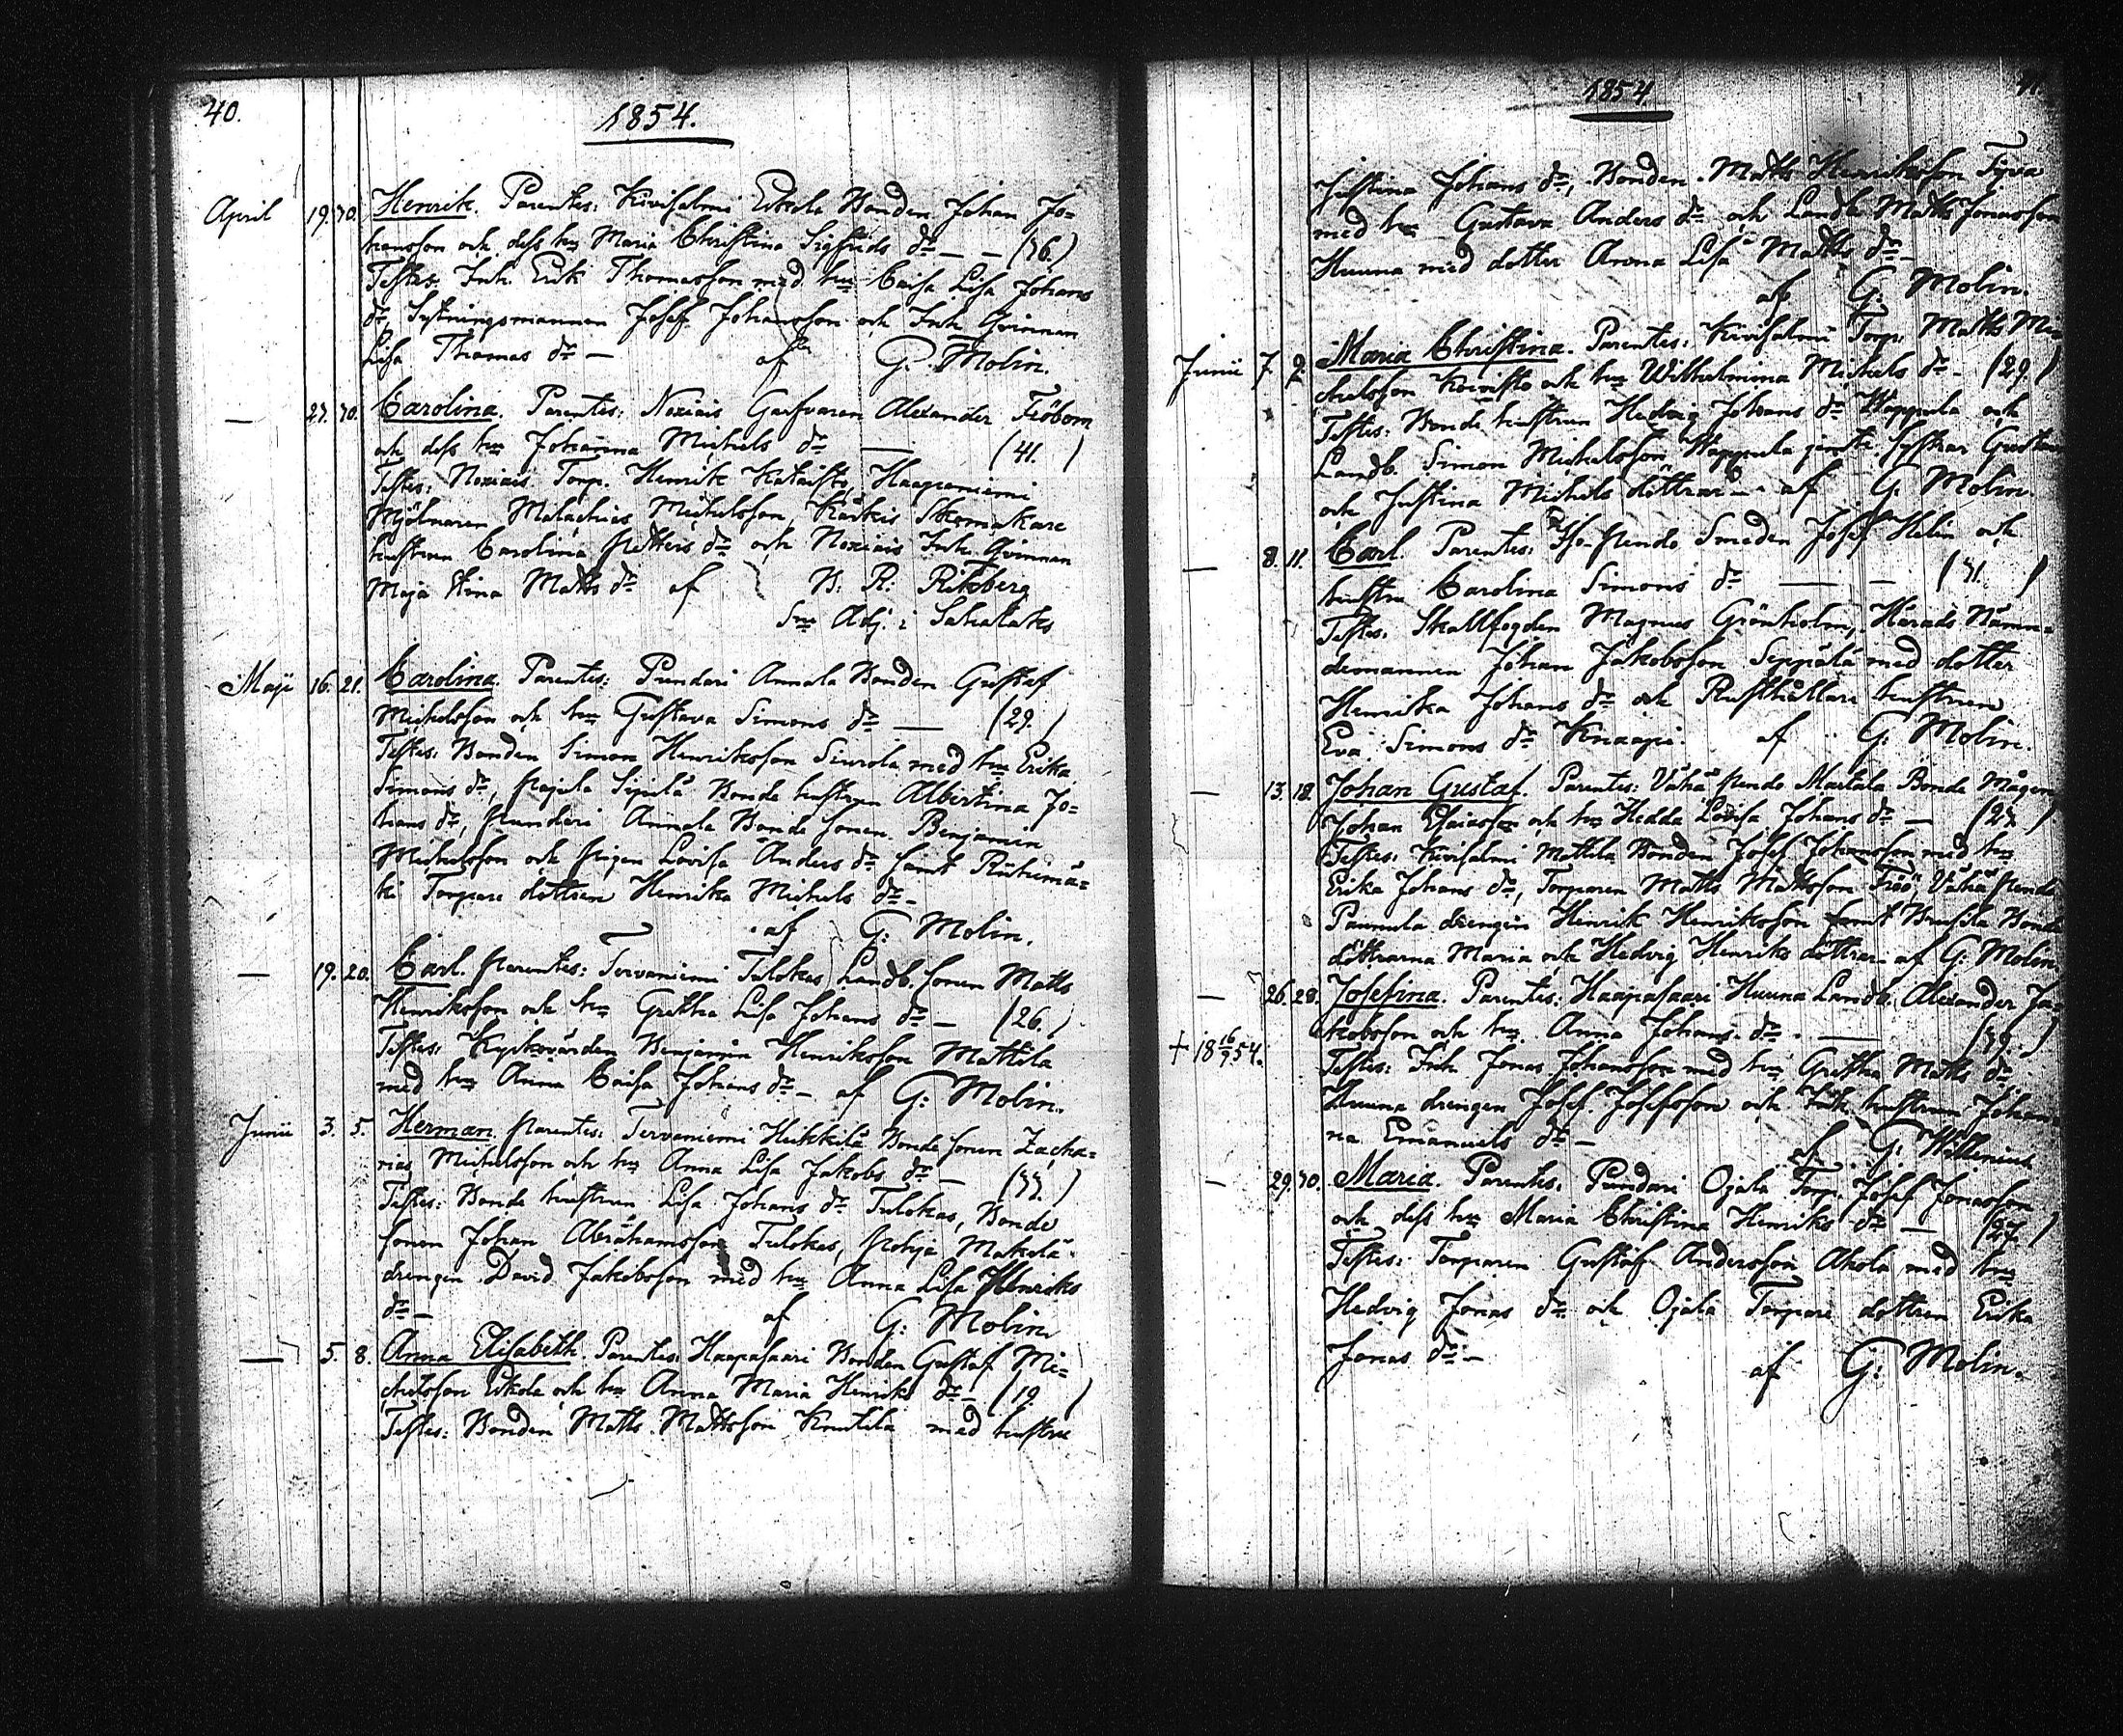 40.
1854.
April 19. 30. Henrik. Parentes: Kivisalmi Eskola Bonden Johan Jo-
hansson och dess hu Maria Christina Sigfrids dr — — (36.)
Testes: Inh. Erik Thomasson med hu Caisa Lisa Johans
dr, Sytningsmannen Josef Johansson och Inh. Qvinnan
Lisa Thomas dr — af G. Molin.
— 27. 30. Carolina. Parentes: Noxiais Garfvaren Alexander Fiöbom
och dess hu Johanna Michels dr — (41. )
Testes: Noxiais Torp. Henrik Kataisto, Haapaniemi
Mjölnaren Malachias Michelsson, Karkis Skomakare
hustrun Carolina Petters dr och Noxiais Inh. Qvinnan
Maja Stina Matts dr af B: R: Ritzberg
Sne Adj. i Sahalaks
Maji 16. 21. Carolina. Parentes: Pundari Annala Bonden Gustaf
Michelsson och hu Gustava Simons dr — (29. )
Testes: Bonden Simon Henriksson Siurola med hu Erika
Simons dr, Pajula Sipilä Bonde hustrun Albertina Jo-
hans dr, Punderi Annala Bonde sonen Benjamin
Michelsson och Pigan Lovisa Anders dr samt Riihimä-
ki Torpare dottren Henrika Michels dr —
af G: Molin.
— 19. 20. Carl. Parentes: Tervaniemi Tulokas Landb. sonen Matts
Henriksson och hu Gretha Lisa Johans dr — (26. )
Testes: Kyrkovärden Benjamin Henriksson Mattila
med hu Anna Caisa Johans dr — af G: Molin.
Junii 3. 5. Herman. Parentes: Tervaniemi Heikkilä Bonde sonen Zacha-
rias Michelsson och hu Anna Lisa Jakobs dr — (33. )
Testes: Bonde hustrun Lisa Johans dr Tulokas, Bonde
sonen Johan Abrahamsson Tulokas, Pohja Makelä
drengen David Jakobsson med hu Anna Lisa Henriks
dr — af G: Molin
— 5. 8. Anna Elisabeth. Parentes: Haapasaari Bonden Gustaf Mi-
chelsson Eskola och hu Anna Maria Henriks dr — (19. )
Testes: Bonden Matts Mattsson Knutila med hustru
1854
Justina Johans dr, Bonden Matts Henriksson Tyva
med hu Gustava Anders dr och Landb. Matts Jonasson
Huuna med dotter Anna Lisa Matts dr —
af G: Molin.
Junii 7. 9. Maria Christina. Parentes: Kivisalmi Torp. Matts Mi-
chelsson Koivisto och hu Wilhelmina Michels dr — (29. )
Testes: Bonde hustrun Hedvig Johans dr Wappula och
Landb. Simon Michelsson Wappula jemte systrar Gustava
och Justina Michels döttrar — af G: Molin.
— 8. 11. Carl. Parentes: Iso-Pendo Smeden Josef Helin och
hustru Carolina Simons dr — — (31. )
Testes: Skallfogden Magnus Grönholm, Härads Näm-
demannen Johan Jakobsson Seppälä med dotter
Henrika Johans dr och Rusthållare hustrun
Eva Simons dr Knaapi. af G: Molin.
— 13. 18. Johan Gustaf. Parentes: Vähä Pendo Martala Bonde Mågen
Johan Esaiasson och hu Hedda Lovisa Johans dr — (27. )
Testes: Kivisalmi Mattila Bonden Josef Johansson med hu
Erika Johans dr, Torparen Matts Mattsson Fiöö, Vähä Pendo
Pannula drengen Henrik Henriksson samt Bussila Bonde
döttrarna Maria och Hedvig Henriks döttrar — af G: Molin.
— 26. 28. Josefina. Parentes: Haapasaari Huuna Landb. Alexander Ja-
kobsson och hu Anna Johans dr — (39. )
+ 18 16/9 54.
Testes: Inh. Jonas Johansson med hu Gretha Matts dr
Huuna drengen Josef Josefsson och Inh. hustrun Johan-
na Emanuels dr — af G: Willenius
— 29. 30. Maria. Parentes: Pundari Ojala Torp. Josef Jonasson
och dess hu Maria Christina Henriks dr — (27. )
Testes: Torparen Gustaf Andersson Ahola med hu
Hedvig Jonas dr och Ojala Torpare dottren Erika
Jonas dr — af G: Molin.